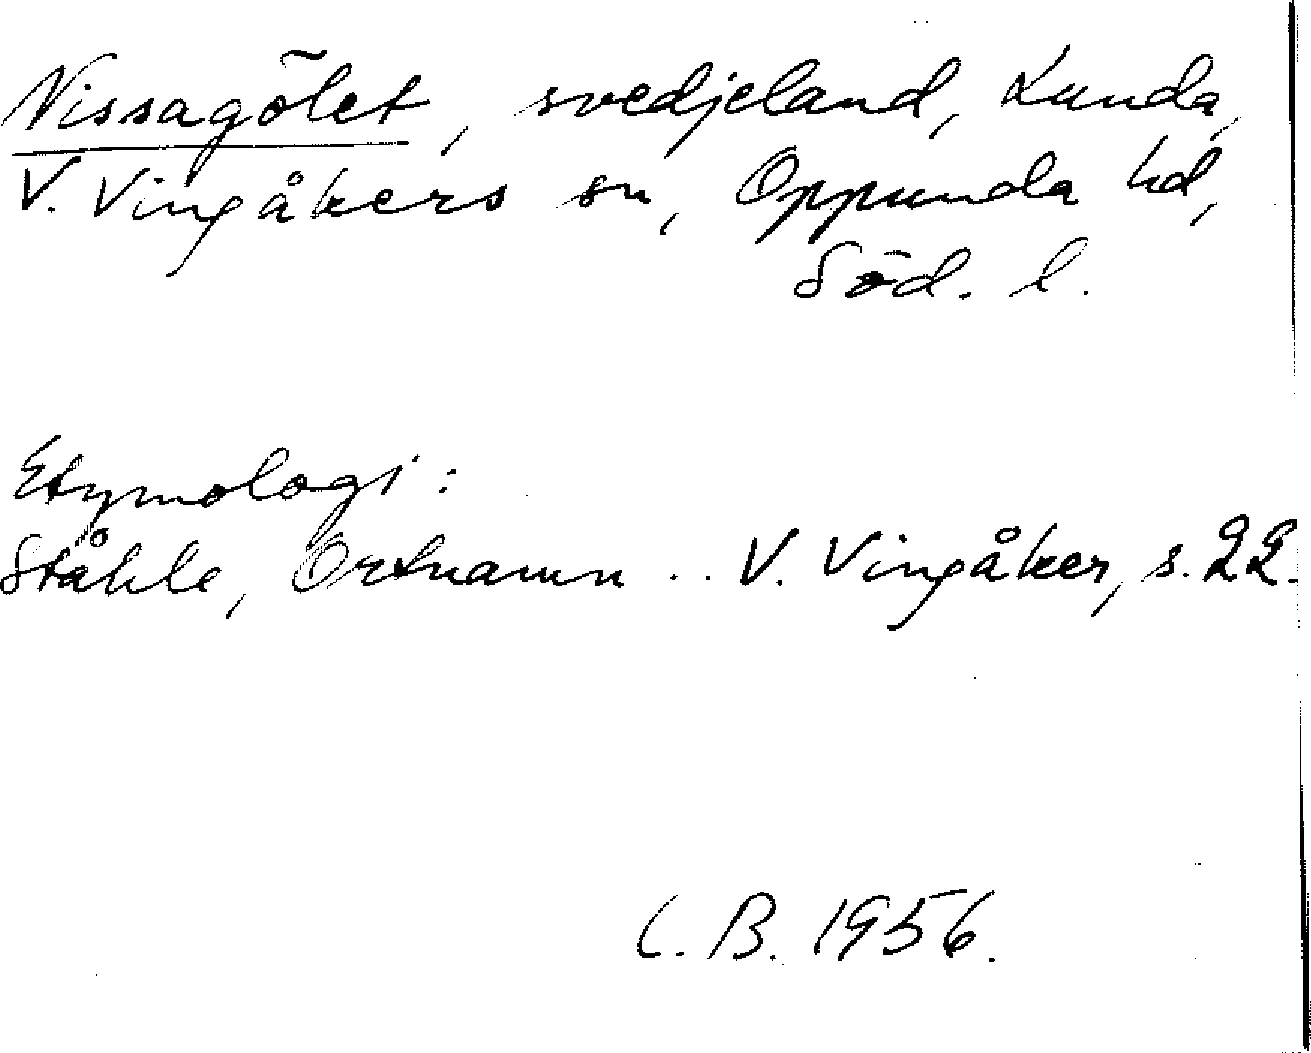 Nissagölet, svedjeland, Lunda,
V. Vingåkers sn, Oppunda hd,
Söd. l.
Etymologi:
Ståhle, Ortnamn .. V. Vingåker, s. 22.
C. B. 1956.